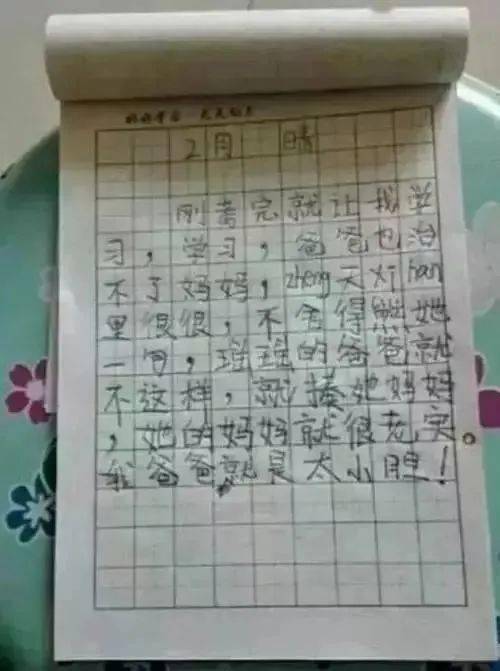 好好学习 天天向上
2月 晴
刚考完就让我学
习，学习，爸爸也治
不了妈妈，zheng天对han
里很很，不舍得熊她
一句，瑶瑶的爸爸就
不这样，就揍她妈妈
，她的妈妈就很老实
我爸爸就是太小胆！